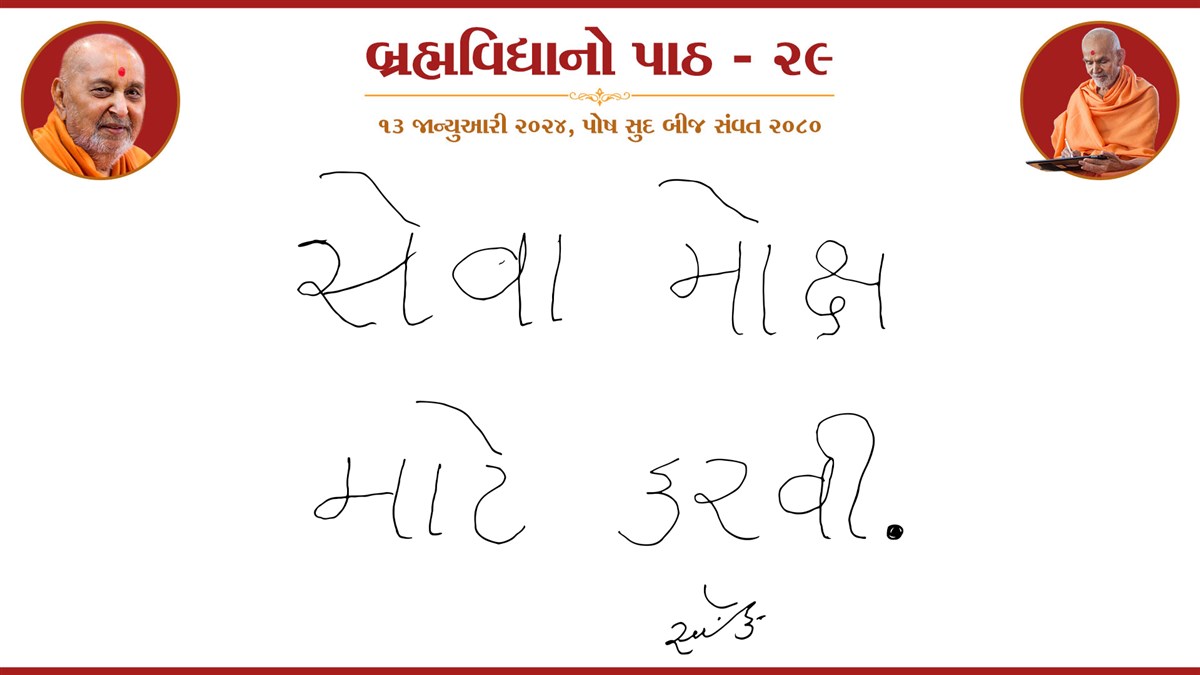 બ્રહ્મવિદ્યાનો પાઠ - ૨૯
૧૩ જાન્યુઆરી ૨૦૨૪, પોષ સુદ બીજ સંવત ૨૦૮૦
સેવા મોક્ષ
માટે કરવી.